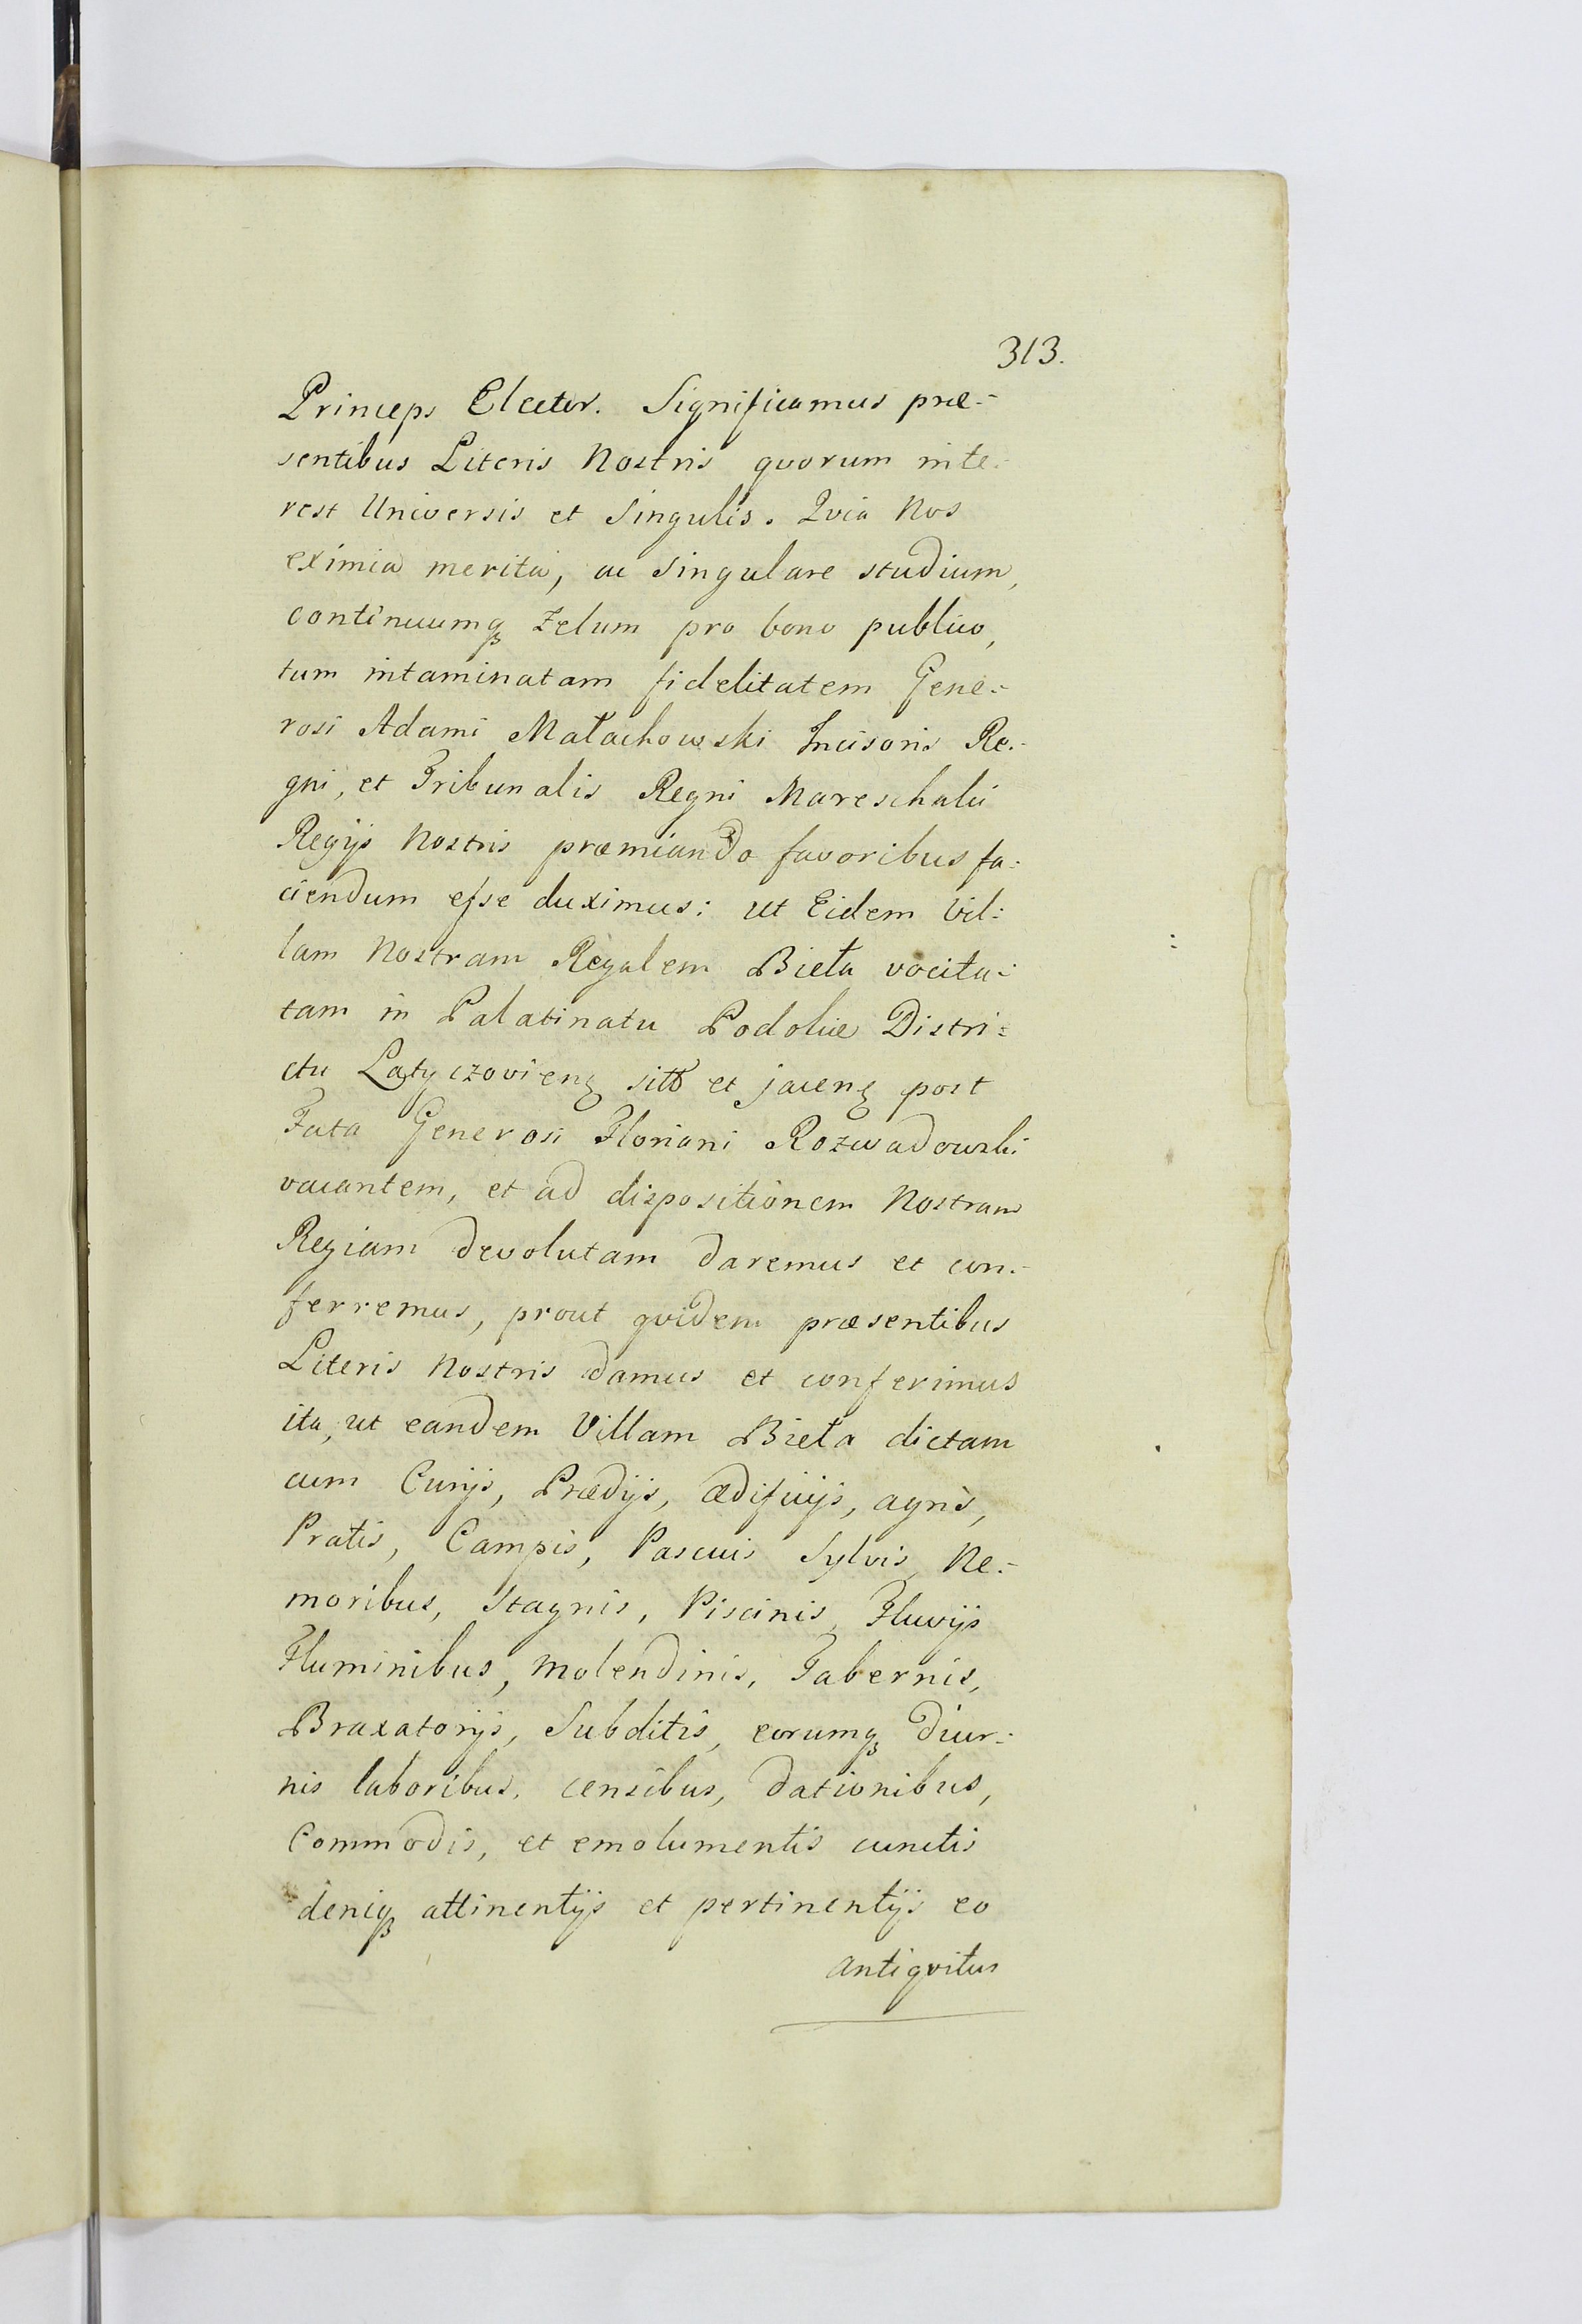 313.
Princeps Elector. Significamus præ-
sentibus Literis Nostris quorum inte-
rest Universis et Singulis. Qvia Nos
eximia merita, ac singulare studium,
continuumq₃ zelum pro bono publico,
tum intaminatam fidelitatem Gene-
rosi Adami Małachowski Incisoris Re-
gni, et Tribunalis Regni Mareschalii
Regijs Nostris præmiando favoribus fa-
ciendum eſse duximus: ut Eidem Vil-
lam Nostram Regalem Bieła vocita-
tam in Palatinatu Podoliæ Distri-
ctu Latyczovienꝫ sitt et jacenꝫ post
Fata Generosi Floriani Rozwadowski
vacantem, et ad dispositionem Nostram
Regiam devolutam daremus et con-
ferremus, prout qvidem præsentibus
Literis Nostris damus et conferimus
ita, ut eandem Villam Bieła dictam
cum Curijs, Prædijs, ædificijs, agris,
Pratis, Campis, Pascuis Sylvis, Ne-
moribus, Stagnis, Piscinis, Fluvijs
Fluminibus, Molendinis, Tabernis,
Braxatorijs, Subditis, eorumq₃ diur-
nis laboribus, censibus, dationibus,
Commodis, et emolumentis cunctis
deniq₃ attinentijs et pertinentijs eo
antiqvitus